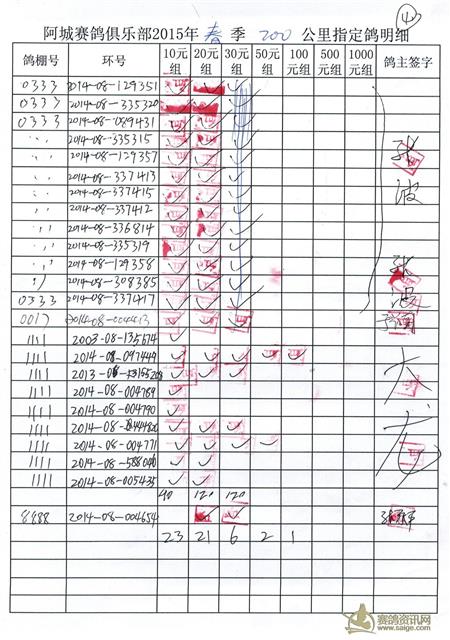 ④
阿城赛鸽俱乐部2015年春季200公里指定鸽明细
鸽棚号 环号 10元组 20元组 30元组 50元组 100元组 500元组 1000元组 鸽主签字
0333 2014-08-129351 ✓ ✓
0333 2014-08-335320 ✓
0333 2014-08-089431 ✓ ✓ ✓
〃 2014-08-335315 ✓ ✓ ✓ 张波
〃 2014-08-129357 ✓ ✓ ✓
〃 2014-08-337413 ✓ ✓ ✓
〃 2014-08-337415 ✓ ✓ ✓
〃 2014-08-337412 ✓ ✓ ✓
〃 2014-08-336814 ✓ ✓ ✓
〃 2014-08-335319 ✓ ✓ ✓
〃 2014-08-129358 ✓ ✓ ✓ 张波
〃 2014-08-308385 ✓ ✓ ✓
0333 2014-08-337417 ✓ ✓ ✓
0017 2014-08-
1111 2003-08-135674 ✓
1111 2014-08-097449 ✓ ✓ ✓ ✓ ✓
1111 2013-
1111 2014-08-004789 ✓
1111 2014-08-004790 ✓
1111 2014-08-
1111 2014-08-004771 ✓ ✓ ✓ ✓
1111 2014-08-
1111 2014-08-005435 ✓ ✓
90 120 120
8888 2014-08-004654 ✓ ✓
23 21 6 2 1
赛鸽资讯网
www.saige.com